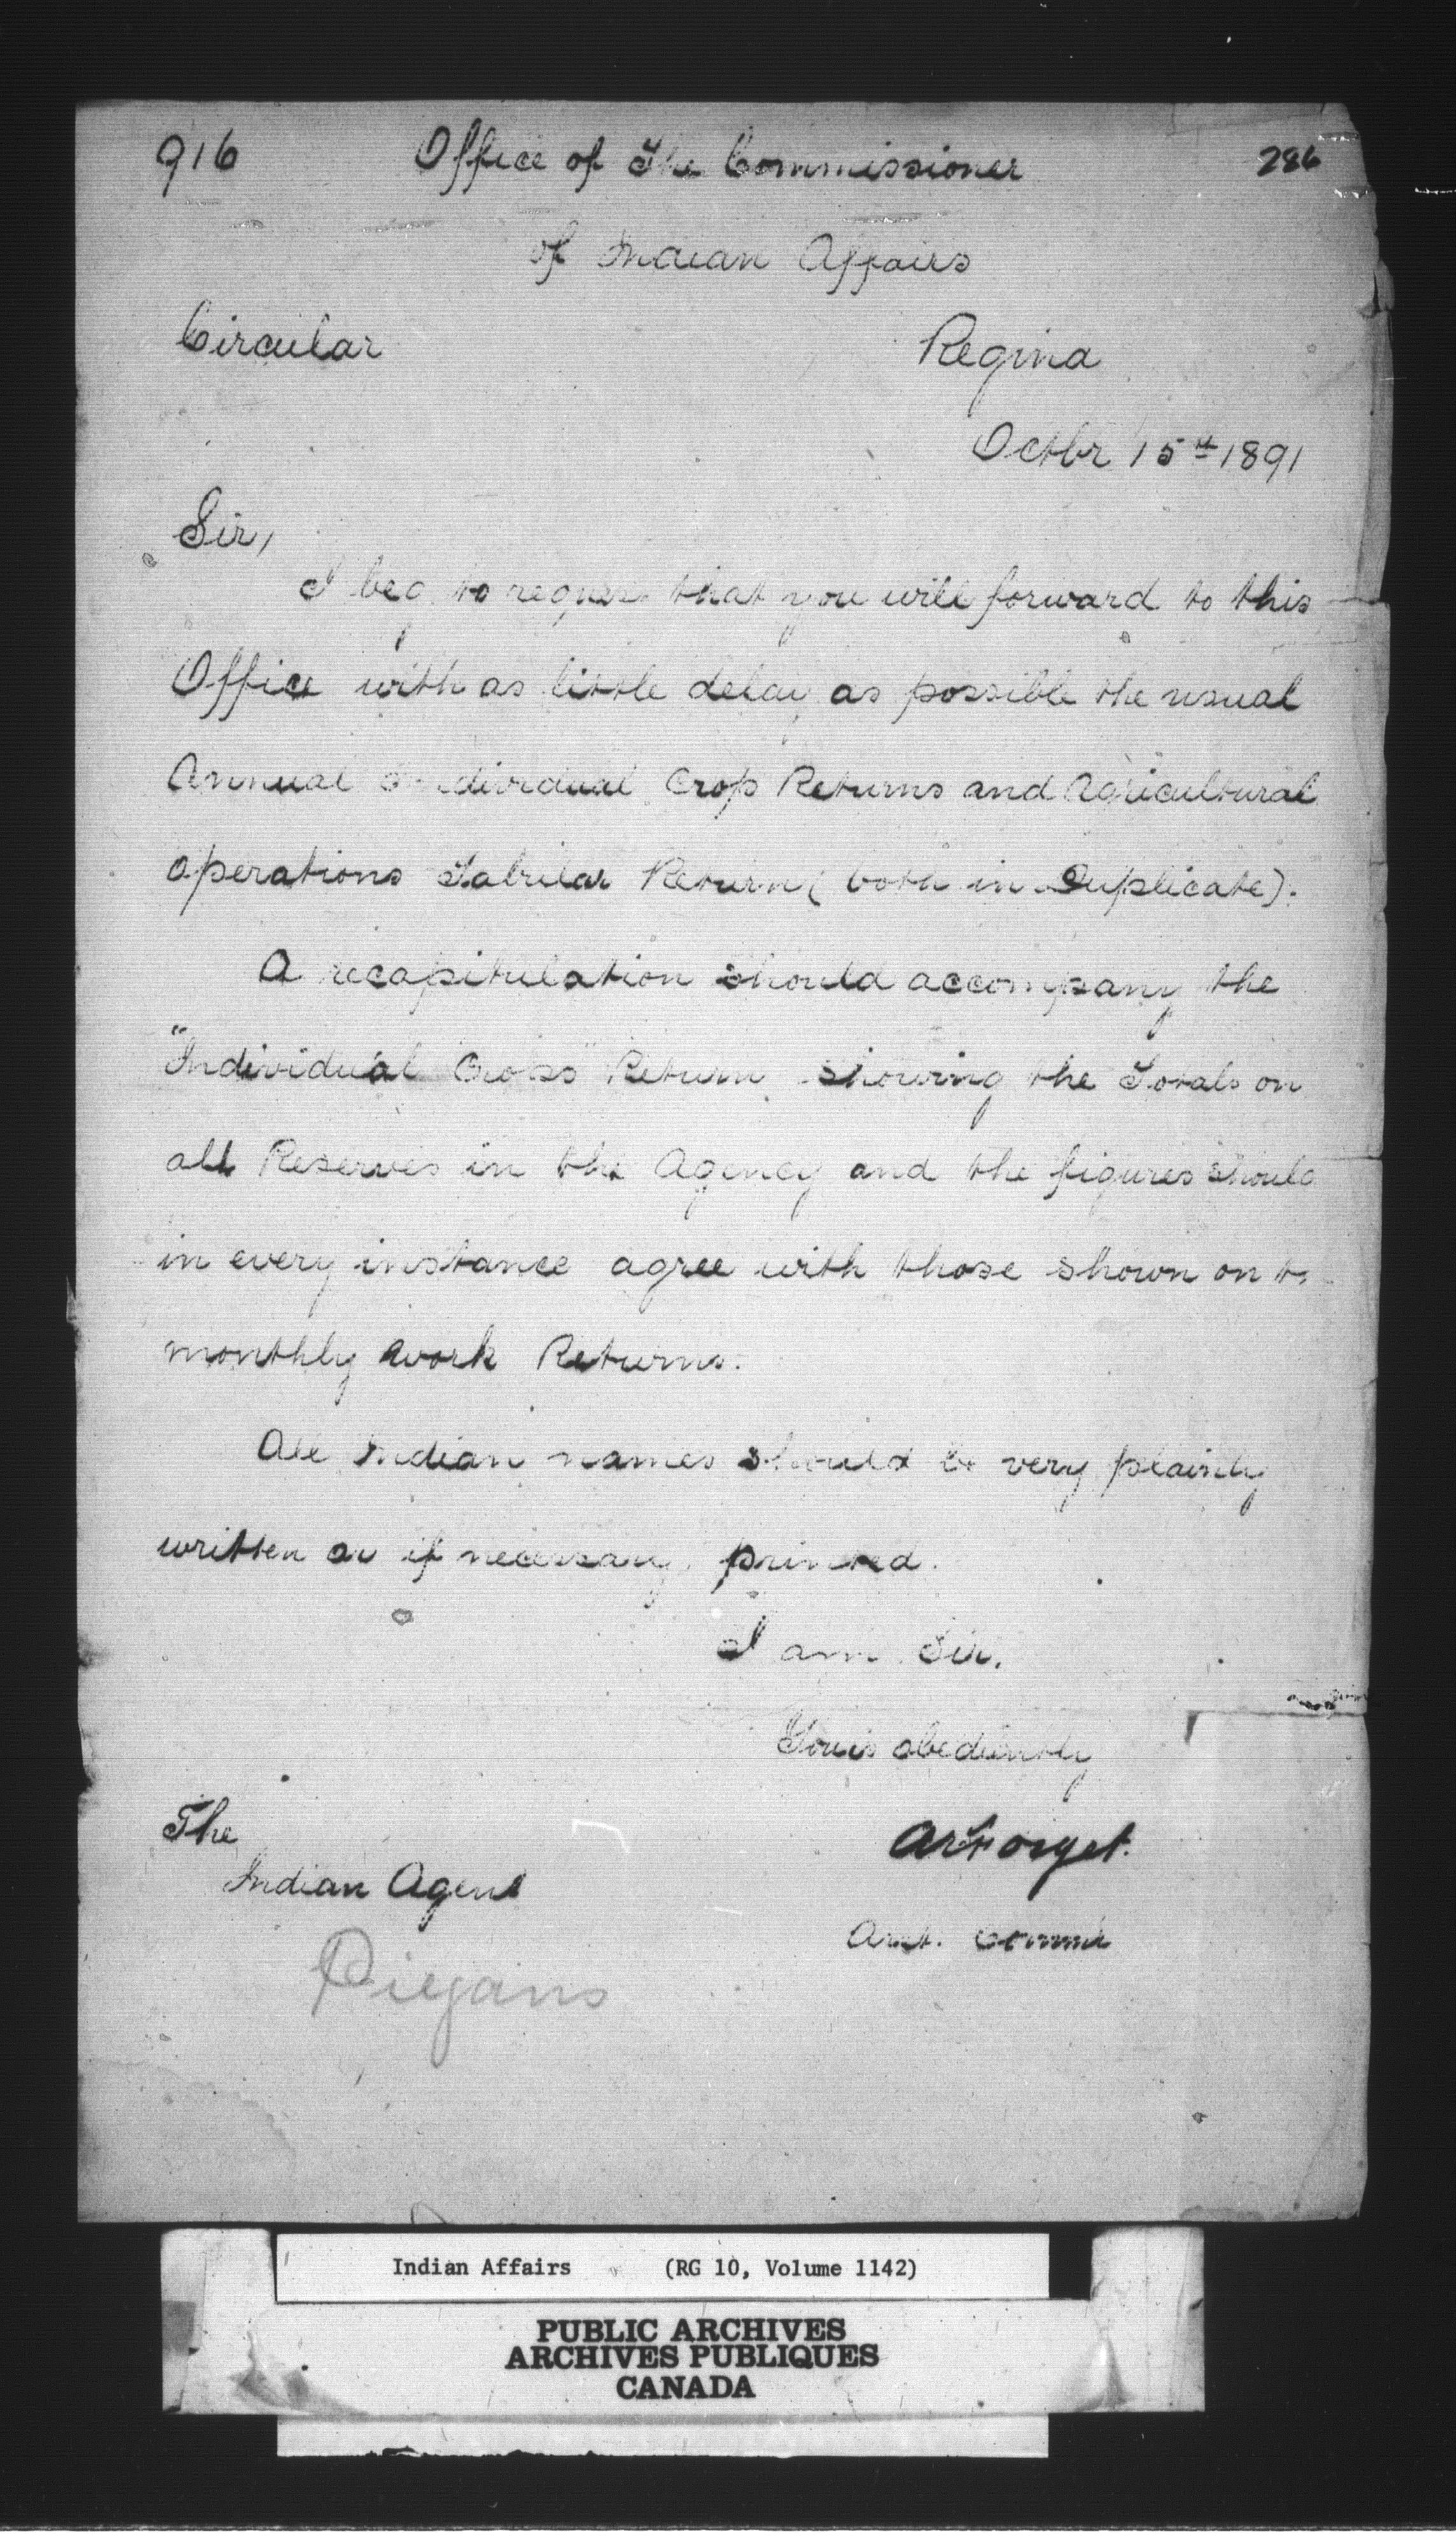 916 Office of The Commissioner 286
of Indian Affairs
Circular Regina
Octbr 15th 1891
Sir,
I beg to request that you will forward to this
Office with as little delay as possible the usual
Annual Individual Crop Returns and Agricultural
Operations Tabular Return (both in Duplicate).
A recapitulation should accompany the
"Individual Crops" Return showing the Totals on
all Reserves in the Agency and the figures should
in every instance agree with those shown on
monthly work Returns.
All Indian names should be very plainly
written or if necessary, printed.
I am Sir,
Yours obediently
The AEForget.
Indian Agent
Asst. Commr
Piegans
Indian Affairs (RG 10, Volume 1142)
PUBLIC ARCHIVES
ARCHIVES PUBLIQUES
CANADA